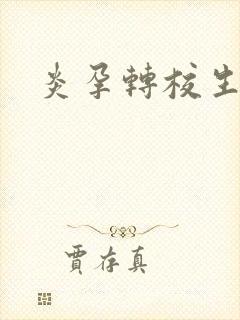 炎孕轉校生
賈存真